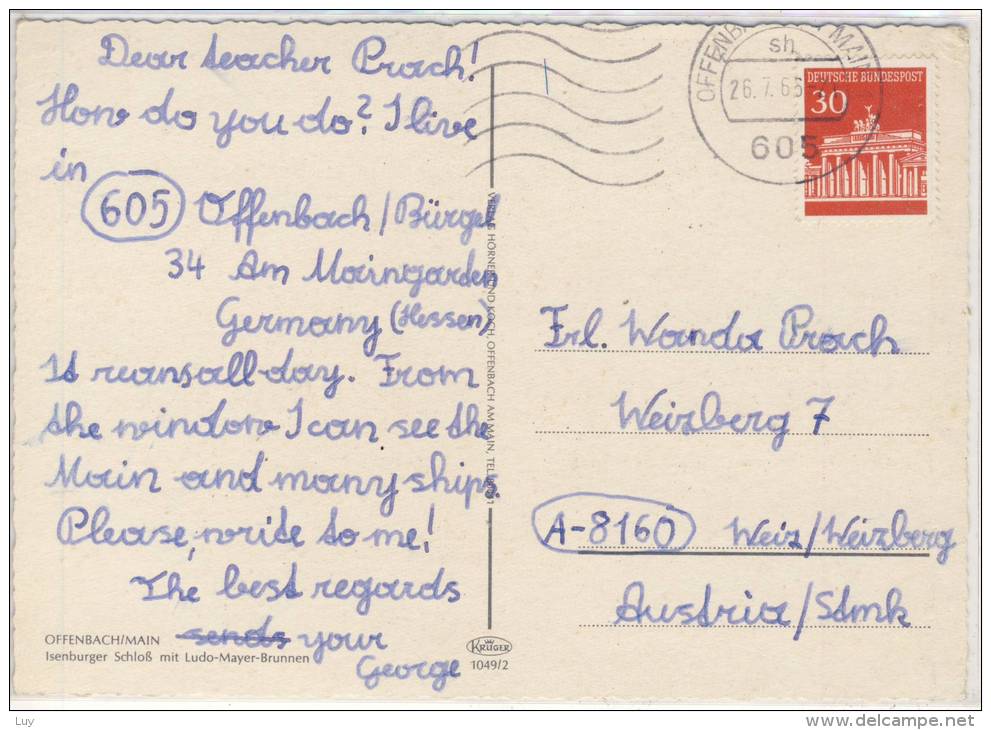 Dear teacher Prach!
How do you do? I live
in
605 Offenbach/Bürgel
34 Am Maingarden
Germany (Hessen)
It reansall day. From
the window I can see the
Main and many ships.
Please, write to me!
The best regards
sends your
George
OFFENBACH/MAIN
Isenburger Schloß mit Ludo-Mayer-Brunnen
VERLAG HORNER UND KOCH, OFFENBACH AM MAIN, TEL.
KRÜGER
1049/2
OFFENB MAIN
sh
26.7.6
605
DEUTSCHE BUNDESPOST
30
Frl. Wanda Prach
Weizberg 7
A-8160 Weiz/Weizberg
Austria/Stmk
Luy
delcampe.net